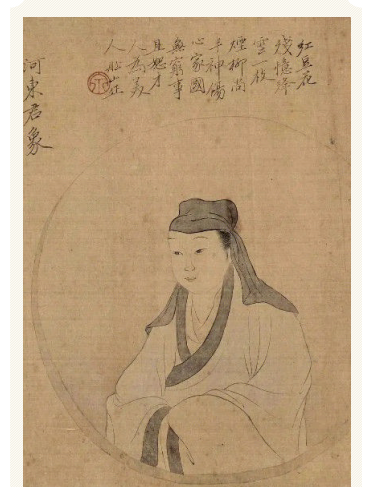 紅豆花
殘憶絳
雲一
煙柳
丰神傷
心家國
無窮事
且恕才
人為美
人
河東君象